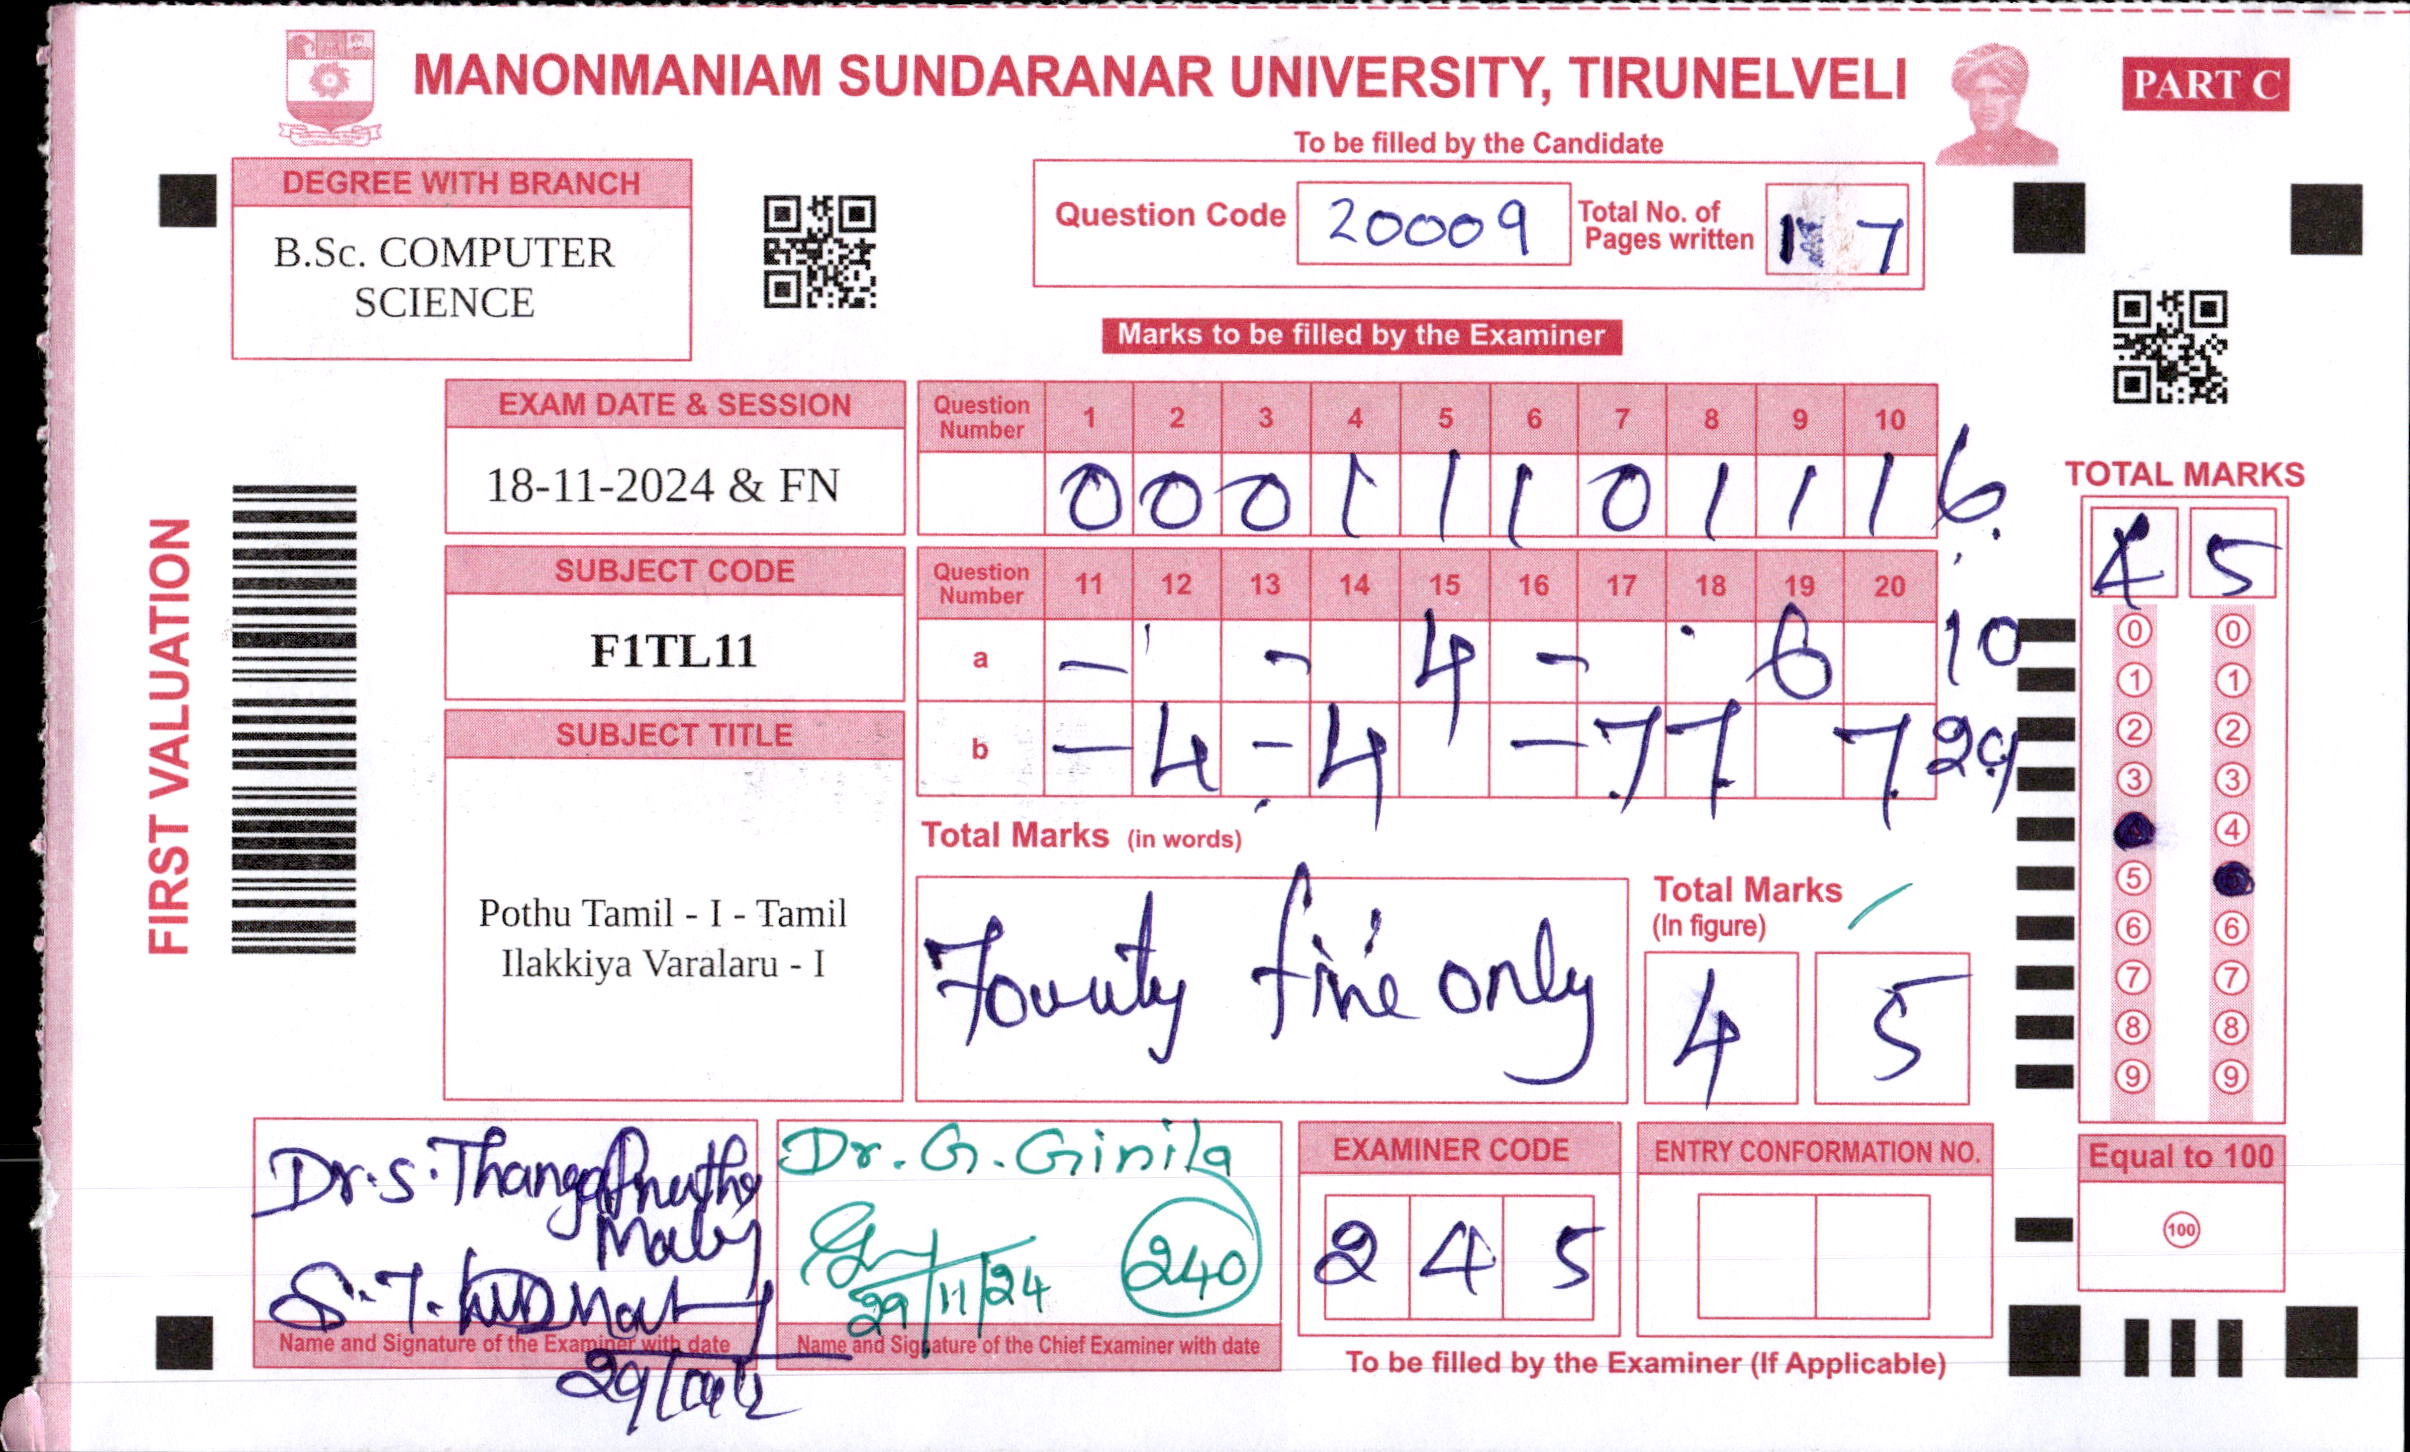 MANONMANIAM SUNDARANAR UNIVERSITY, TIRUNELVELI
PART C
To be filled by the Candidate
Question Code 20009 Total No. of Pages written 7
DEGREE WITH BRANCH
B.Sc. COMPUTER
SCIENCE
Marks to be filled by the Examiner
FIRST VALUATION
EXAM DATE & SESSION
18-11-2024 & FN
SUBJECT CODE
F1TL11
SUBJECT TITLE
Pothu Tamil - I - Tamil
Ilakkiya Varalaru - I
Question Number 1 2 3 4 5 6 7 8 9 10
0 0 0 1 1 1 0 1 1 1 6
Question Number 11 12 13 14 15 16 17 18 19 20
a - - 4 - 6 10
b - 4 - 4 - 7 7 7 29
Total Marks (in words)
only
Total Marks
(In figure)
4 5
TOTAL MARKS
4 5
0 0
1 1
2 2
3 3
4
5
6 6
7 7
8 8
9 9
Equal to 100
100
Dr. S. Thanga
Name and Signature of the Examiner with date
Dr. G. Ginila
240
29/11/24
Name and Signature of the Chief Examiner with date
EXAMINER CODE
2 4 5
ENTRY CONFORMATION NO.
To be filled by the Examiner (If Applicable)